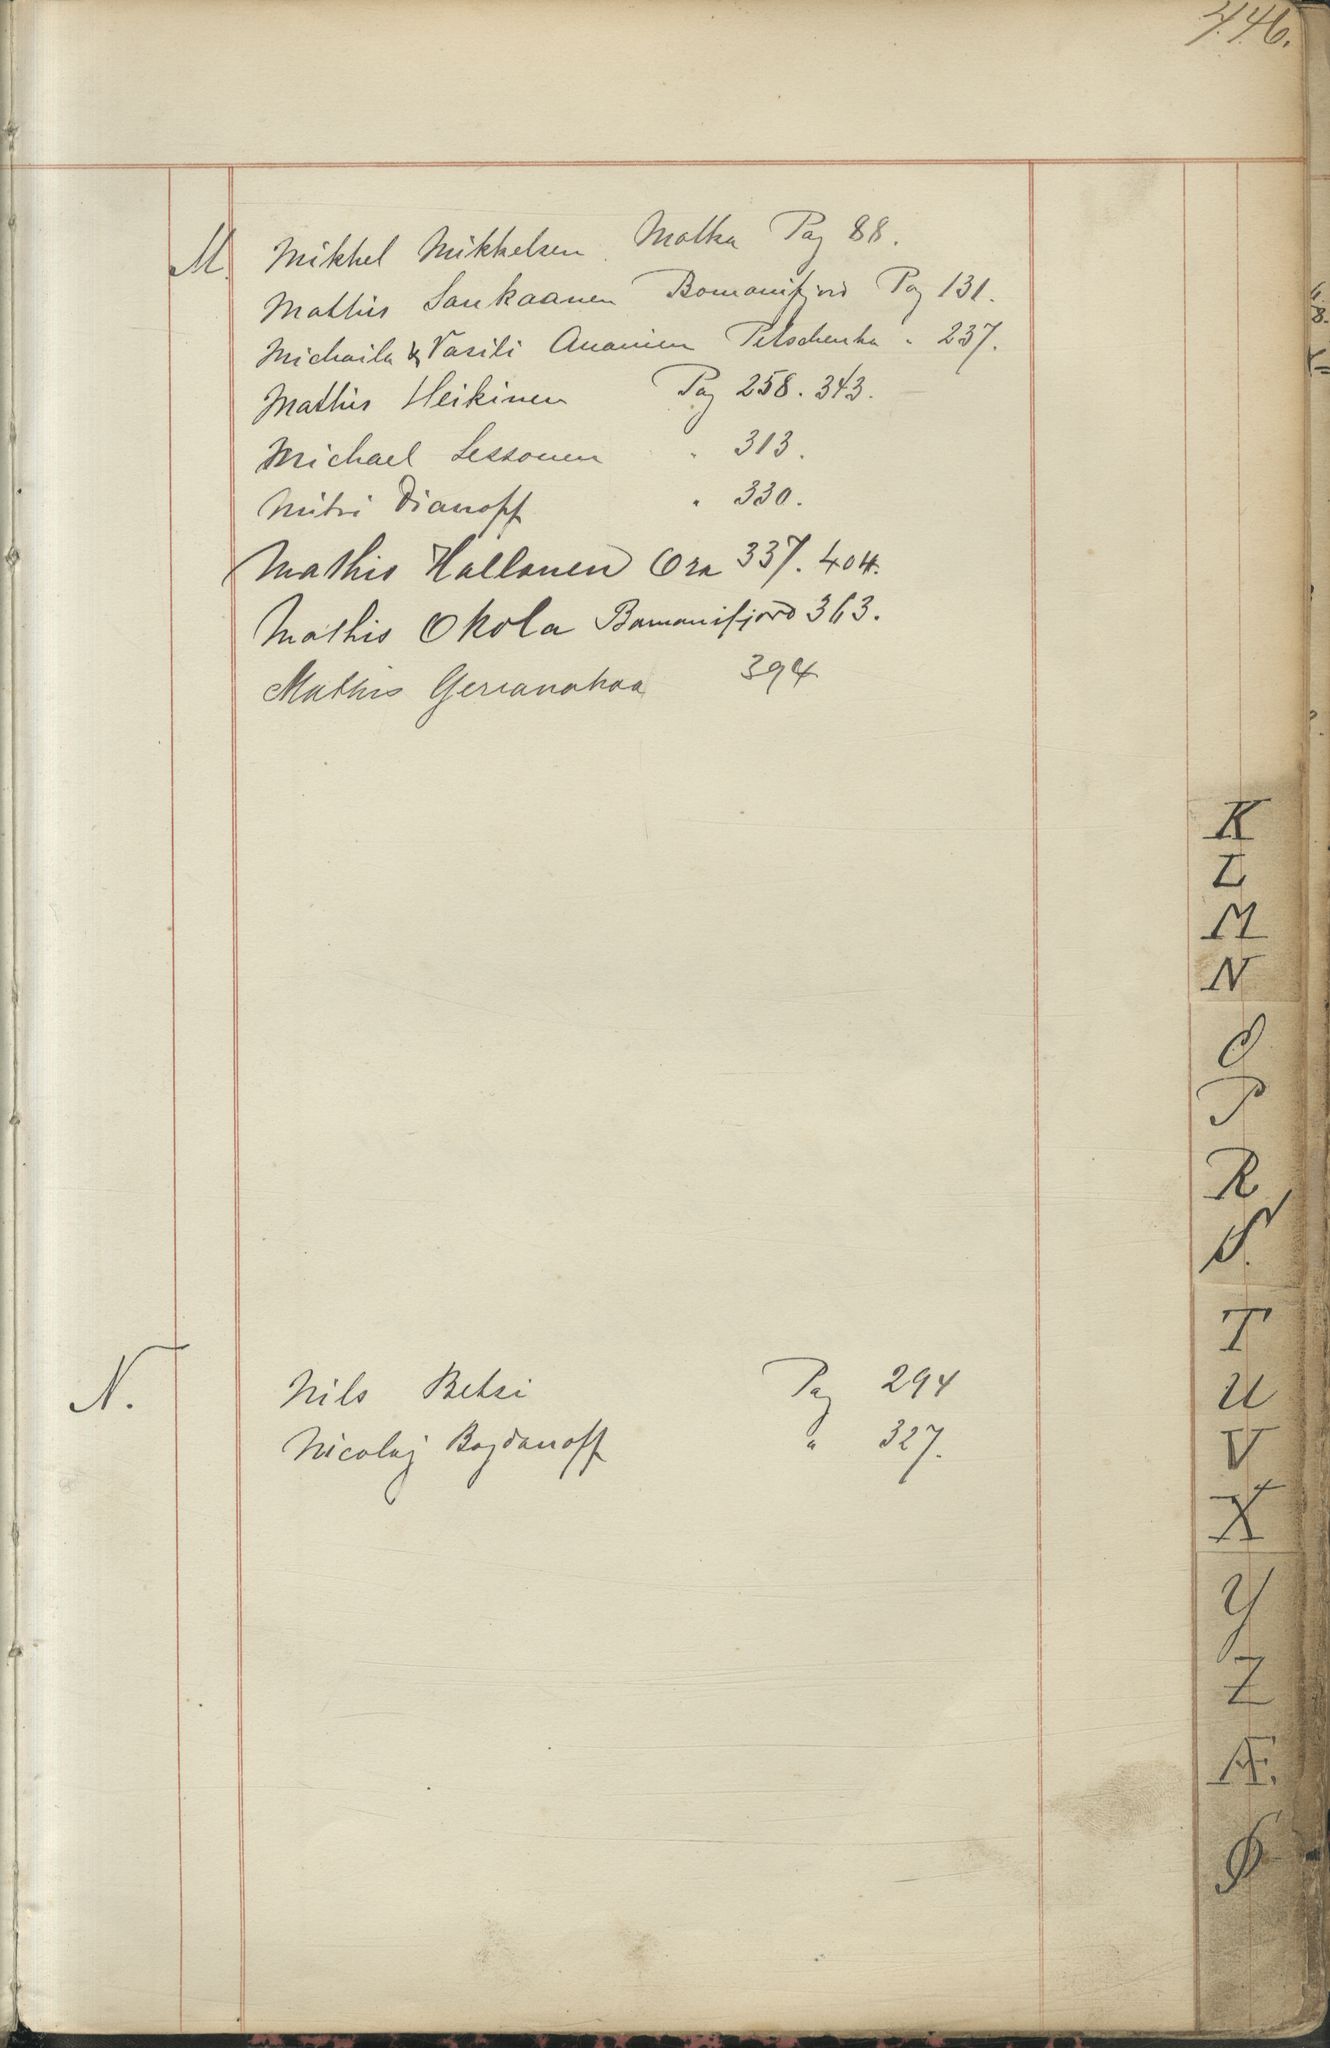 446.
M. Mikkel Mikkelsen. Motka Pag 88.
Mathis Laukaanen Bomanifjord Pag 131.
Michaila & Vasili Ananien Petschenka " 237.
Mathis Heikinen Pag 258. 343.
Michael Lessonen " 313.
Mitri Dianoff " 330.
Mathis Hallonen Ora 337. 404.
Mathis Okola Bomanifjord 363.
Mathis 394
K
L
M
N
O
P
R
S.
T
U
V
X
Y
Z
Æ.
Ø
N. Nils Betsi Pag 294
Nicolaj Bogdanoff " 327.